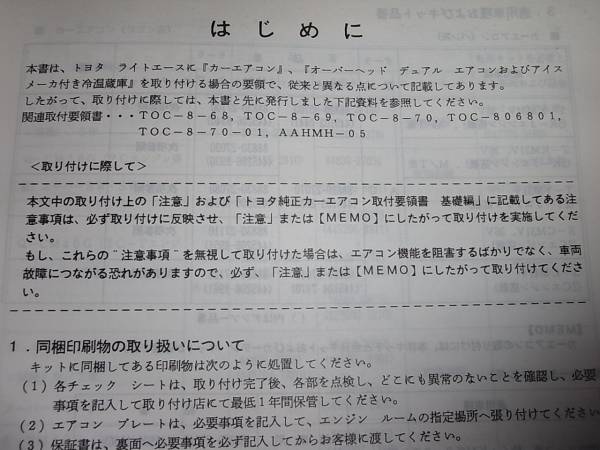 はじめに
本書は、トヨタ ライトエースに『カーエアコン』、『オーバーヘッド デュアル エアコンおよびアイス
メーカ付き冷温蔵庫』を取り付ける場合の要領で、従来と異なる点について記載してあります。
したがって、取り付けに際しては、本書と先に発行しました下記資料を参照してください。
関連取付要領書・・・TOC-8-68, TOC-8-69, TOC-8-70, TOC-806801,
TOC-8-70-01, AAHMH-05
<取り付けに際して>
本文中の取り付け上の「注意」および「トヨタ純正カーエアコン取付要領書 基礎編」に記載してある注
意事項は、必ず取り付けに反映させ、「注意」または【MEMO】にしたがって取り付けを実施してくだ
さい。
もし、これらの"注意事項"を無視して取り付けた場合は、エアコン機能を阻害するばかりでなく、車両
故障につながる恐れがありますので、必ず、「注意」または【MEMO】にしたがって取り付けてくださ
い。
1．同梱印刷物の取り扱いについて
キットに同梱してある印刷物は次のように処置してください。
(1) 各チェック シートは、取り付け完了後、各部を点検し、どこにも異常のないことを確認し、必要
事項を記入して取り付け店にて最低1年間保管してください。
(2) エアコン プレートは、必要事項を記入して、エンジン ルームの指定場所へ張り付けてくださ
(3) 保証書は、裏面へ必要事項を必ず記入してからお客様に渡してください。